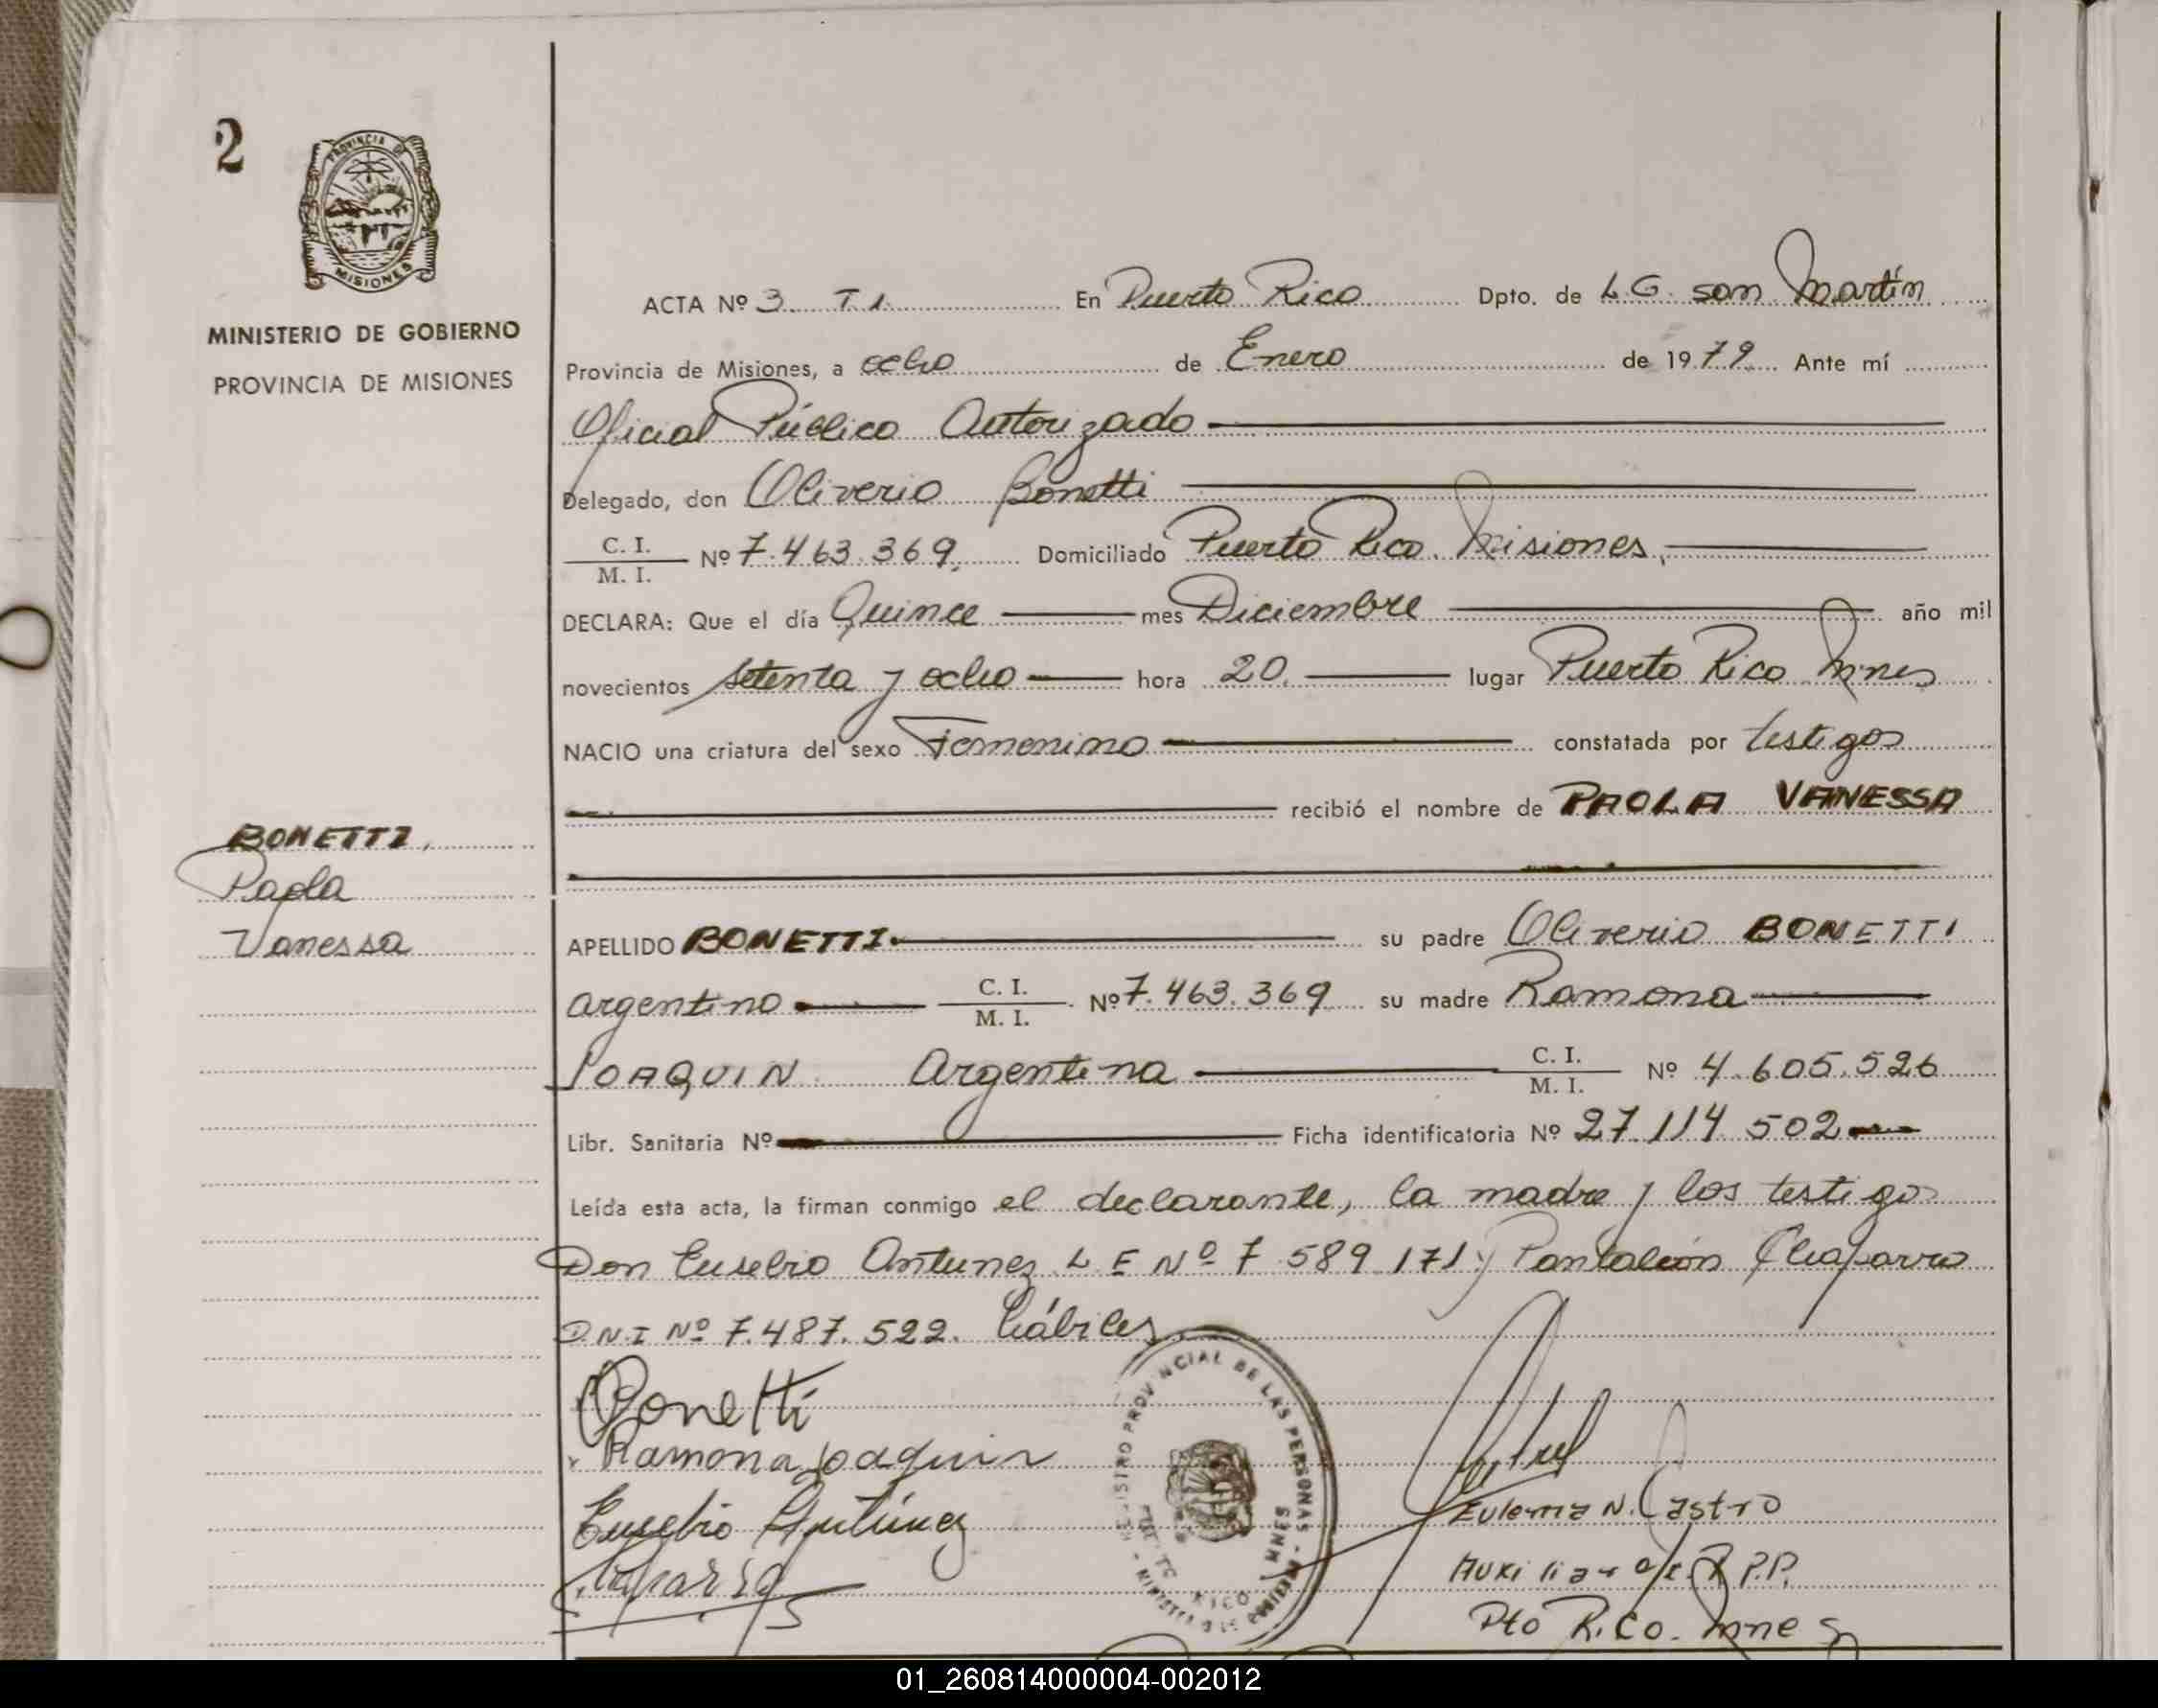 2
PROVINCIA DE
MISIONES
MINISTERIO DE GOBIERNO
PROVINCIA DE MISIONES
ACTA Nº 3 T 1. En Puerto Rico Dpto. de L.G. san Martín
Provincia de Misiones, a ocho de Enero de 1979 Ante mí
Oficial Público Autorizado
Delegado, don Oliverio Bonetti
C. I.
M. I. Nº 7.463.369. Domiciliado Puerto Rico. Misiones,
DECLARA: Que el día Quince mes Diciembre año mil
novecientos setenta y ocho hora 20. lugar Puerto Rico Mnes
NACIO una criatura del sexo Femenino constatada por testigos
recibió el nombre de PAOLA VANESSA
BONETTI,
Paola
Vanessa
APELLIDO BONETTI su padre Oliverio BONETTI
argentino C. I.
M. I. Nº 7.463.369 su madre Ramona
JOAQUIN Argentina C. I.
M. I. Nº 4.605.526
Libr. Sanitaria Nº Ficha identificatoria Nº 27.114 502
Leída esta acta, la firman conmigo el declarante, la madre y los testigos
Don Eusebio Antunez L E Nº 7 589 171 y Pantaleón Chaparro
D.N.I Nº 7.487.522. hábiles
Bonetti
Ramona Joaquin
Eusebio Antúnez
REGISTRO PROVINCIAL DE LAS PERSONAS
MNES
RICO
Eulema N. Castro
Auxiliar a/c R P.P.
Pto Rico. Mnes
01_260814000004-002012